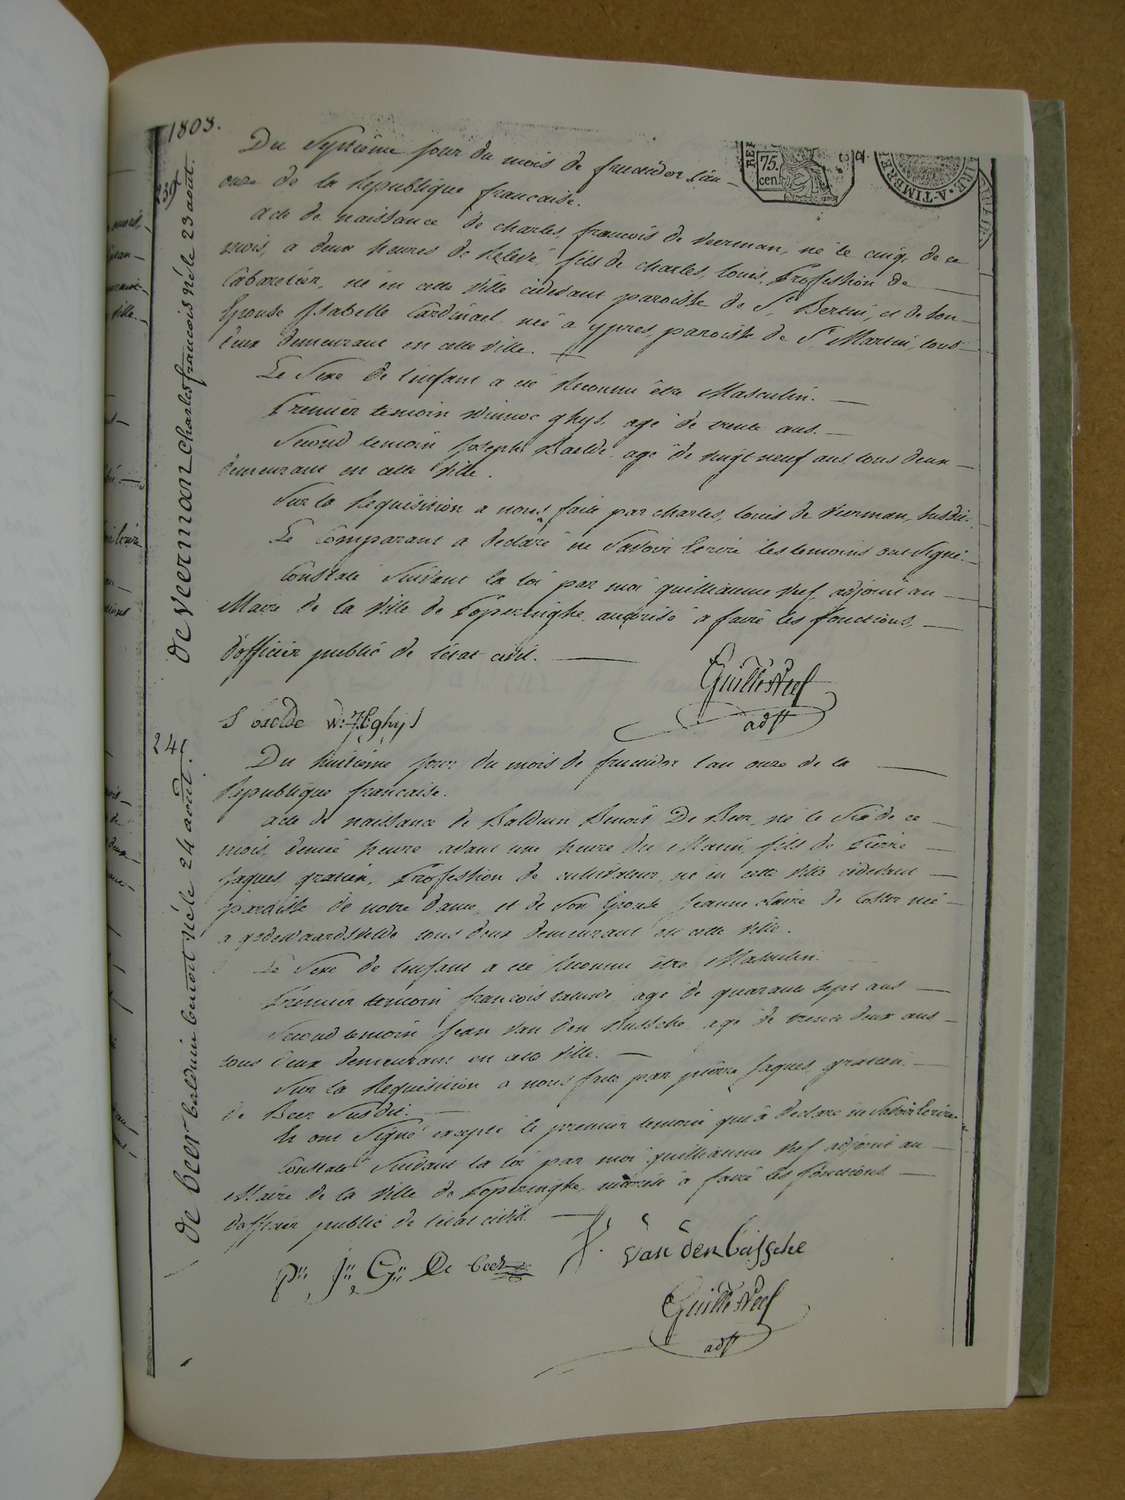 1803.
75.
cent
239
de veerman charles francois né le 23 aout.
Du Septième jour du mois de fructidor l'an
onze de la Republique française.
acte de naissance de charles francois de veerman, né le cinq de ce
mois, a deux heures de Relevé, fils de charles, louis, Profession de
Cabaretier, né en cette ville cidevant paroisse de St Bertin, et de son
Epouse Isabelle Cardinael né a ypres, paroisse de St Martin, tous
deux demeurant en cette ville.
Le Sexe de l'enfant a été Reconnu être Masculin.
Premier temoin winnoc ghys, agé de trente ans.
Second temoin Joseph Baelde agé de vingt neuf ans, tous deux
demeurant en cette ville.
Sur la Requisition a nous faite par charles, louis de veerman, susdit.
Le Comparant a declaré ne Savoir Ecrire les temoins ont Signé.
Constaté Suivant la loi par moi guilliaume Nef adjoint au
Maire de la ville de Poperinghe, autorisé a faire les fonctions,
d'officier public de l'état civil.
Guille Neef
adjt
J baelde w: ghijs
240
de beer balduin benoit né le 24 août.
Du huitième jour du mois de fructidor l'an onze de la
Republique française.
acte de naissance de Balduin Benoit De Beer, né le Six de ce
mois, demie heure avant une heure du Matin, fils de Pierre
Jaques, gratien, Profession de cultivateur, né en cette ville cidevant
paroisse de notre dame, et de Son Epouse Jeanne claire de Coster né
a godewaardsvelde tous deux demeurant en cette ville.
Le Sexe de l'enfant a été Reconnu être Masculin.
Premier temoin françois agé de quarante sept ans
Second temoin Jean Van den Bussche, agé de trente deux ans
tous deux demeurant en cette ville.
Sur la Requisition a nous faite par pierre Jaques gratien
de Beer Susdit.
Et ont Signé excepté le premier temoin qui a declaré ne Savoir Ecrire.
Constaté Suivant la loi par moi guilliaume Nef adjoint au
Maire de la ville de Poperinghe, autorisé à faire les fonctions
d'officier public de l'état civil.
p: J: G: De beer J. van den bussche
Guille Neef
adjt